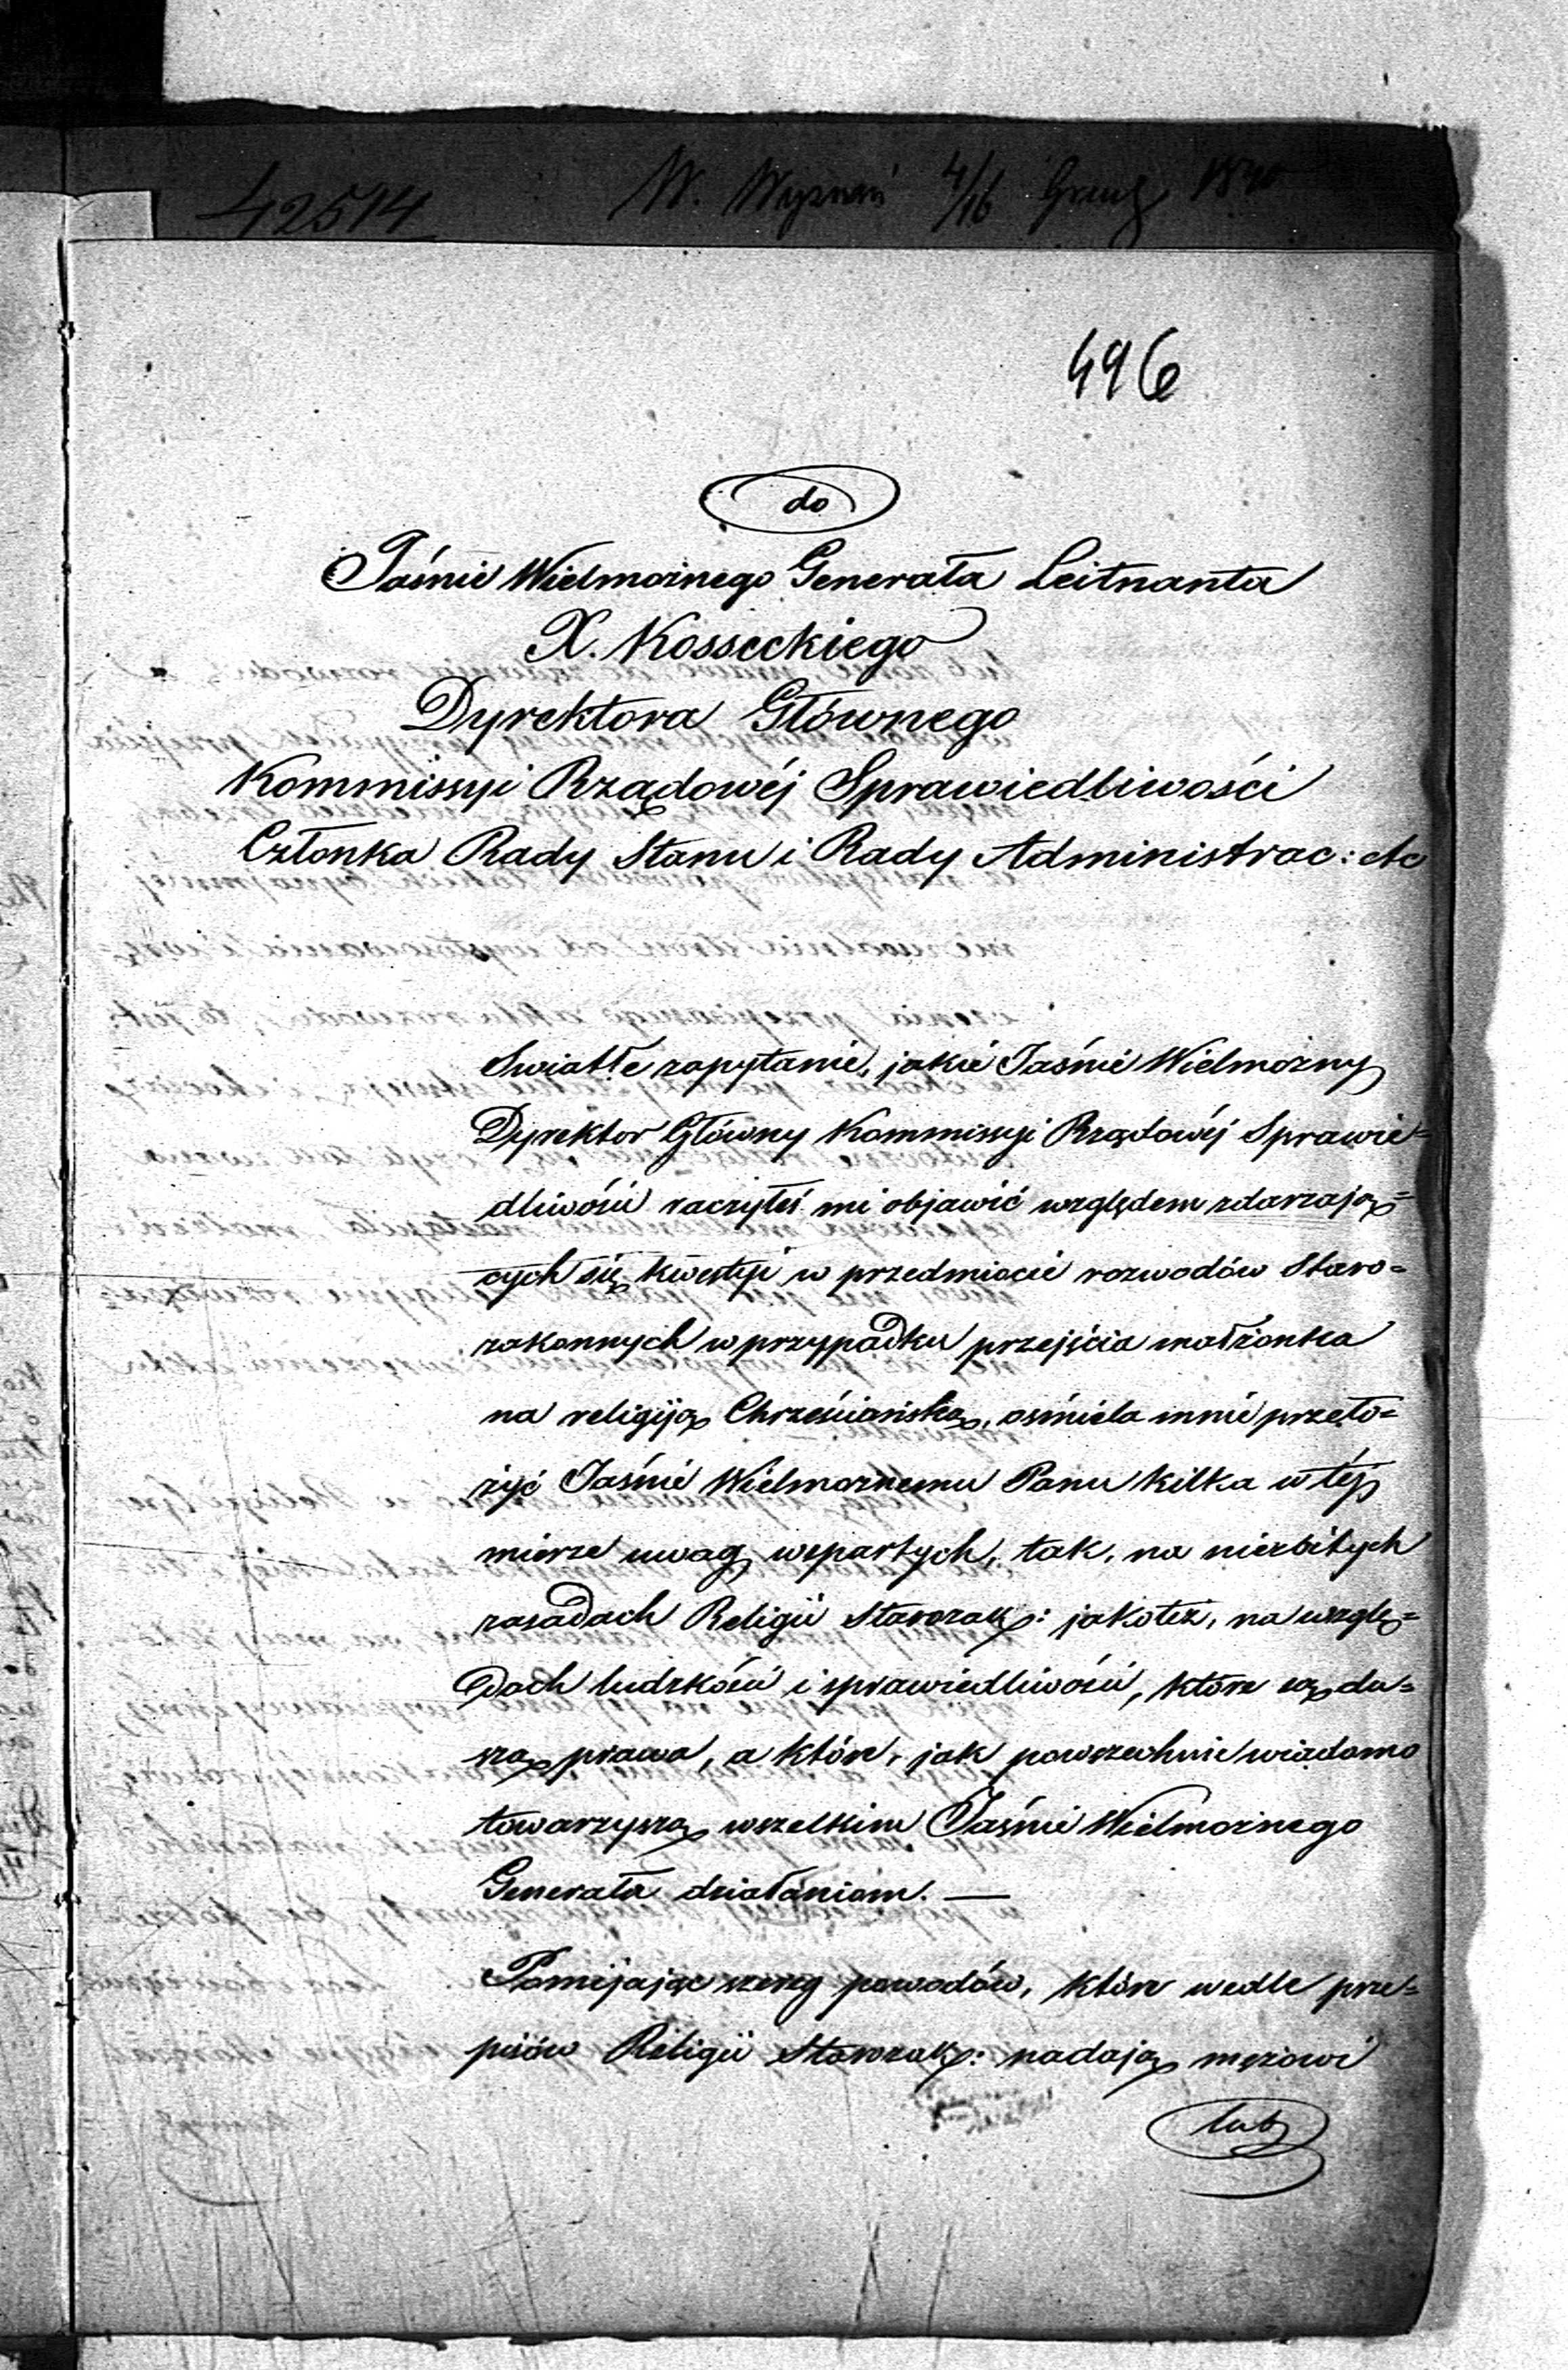 42514 W. Wyznań 4/16 Grud 1840
496
do
Jaśnie Wielmożnego Generała Leitnanta
X. Kosseckiego
Dyrektora Głównego
Kommissyi Rządowéj Sprawiedliwości
Członka Rady Stanu i Rady Administrac: etc
Swiatłe zapytanie, jakie Jaśnie Wielmożny
Dyrektor Główny Kommissyi Rządowéj Sprawie=
dliwości raczyłeś mi objawić względem zdarzają=
cych się kwestyi w przedmiocie rozwodów Staro=
zakonnych w przypadku przejścia małżonka
na religiją Chrześciańską, ośmiela mnie przeło=
żyć Jaśnie Wielmożnemu Panu kilka w téj
mierze uwag wspartych, tak, na niezbitych
zasadach Religii Starozak: jakoteż, na wzglę=
dach ludzkości i sprawiedliwości, które są du=
szą prawa, a które, jak powszechnie wiadomo
towarzyszą wszelkim Jaśnie Wielmożnego
Generała działaniom. —
Pomijając szereg powodów, które wedle prze=
pisów Religii Starozak: nadają mężowi
lub